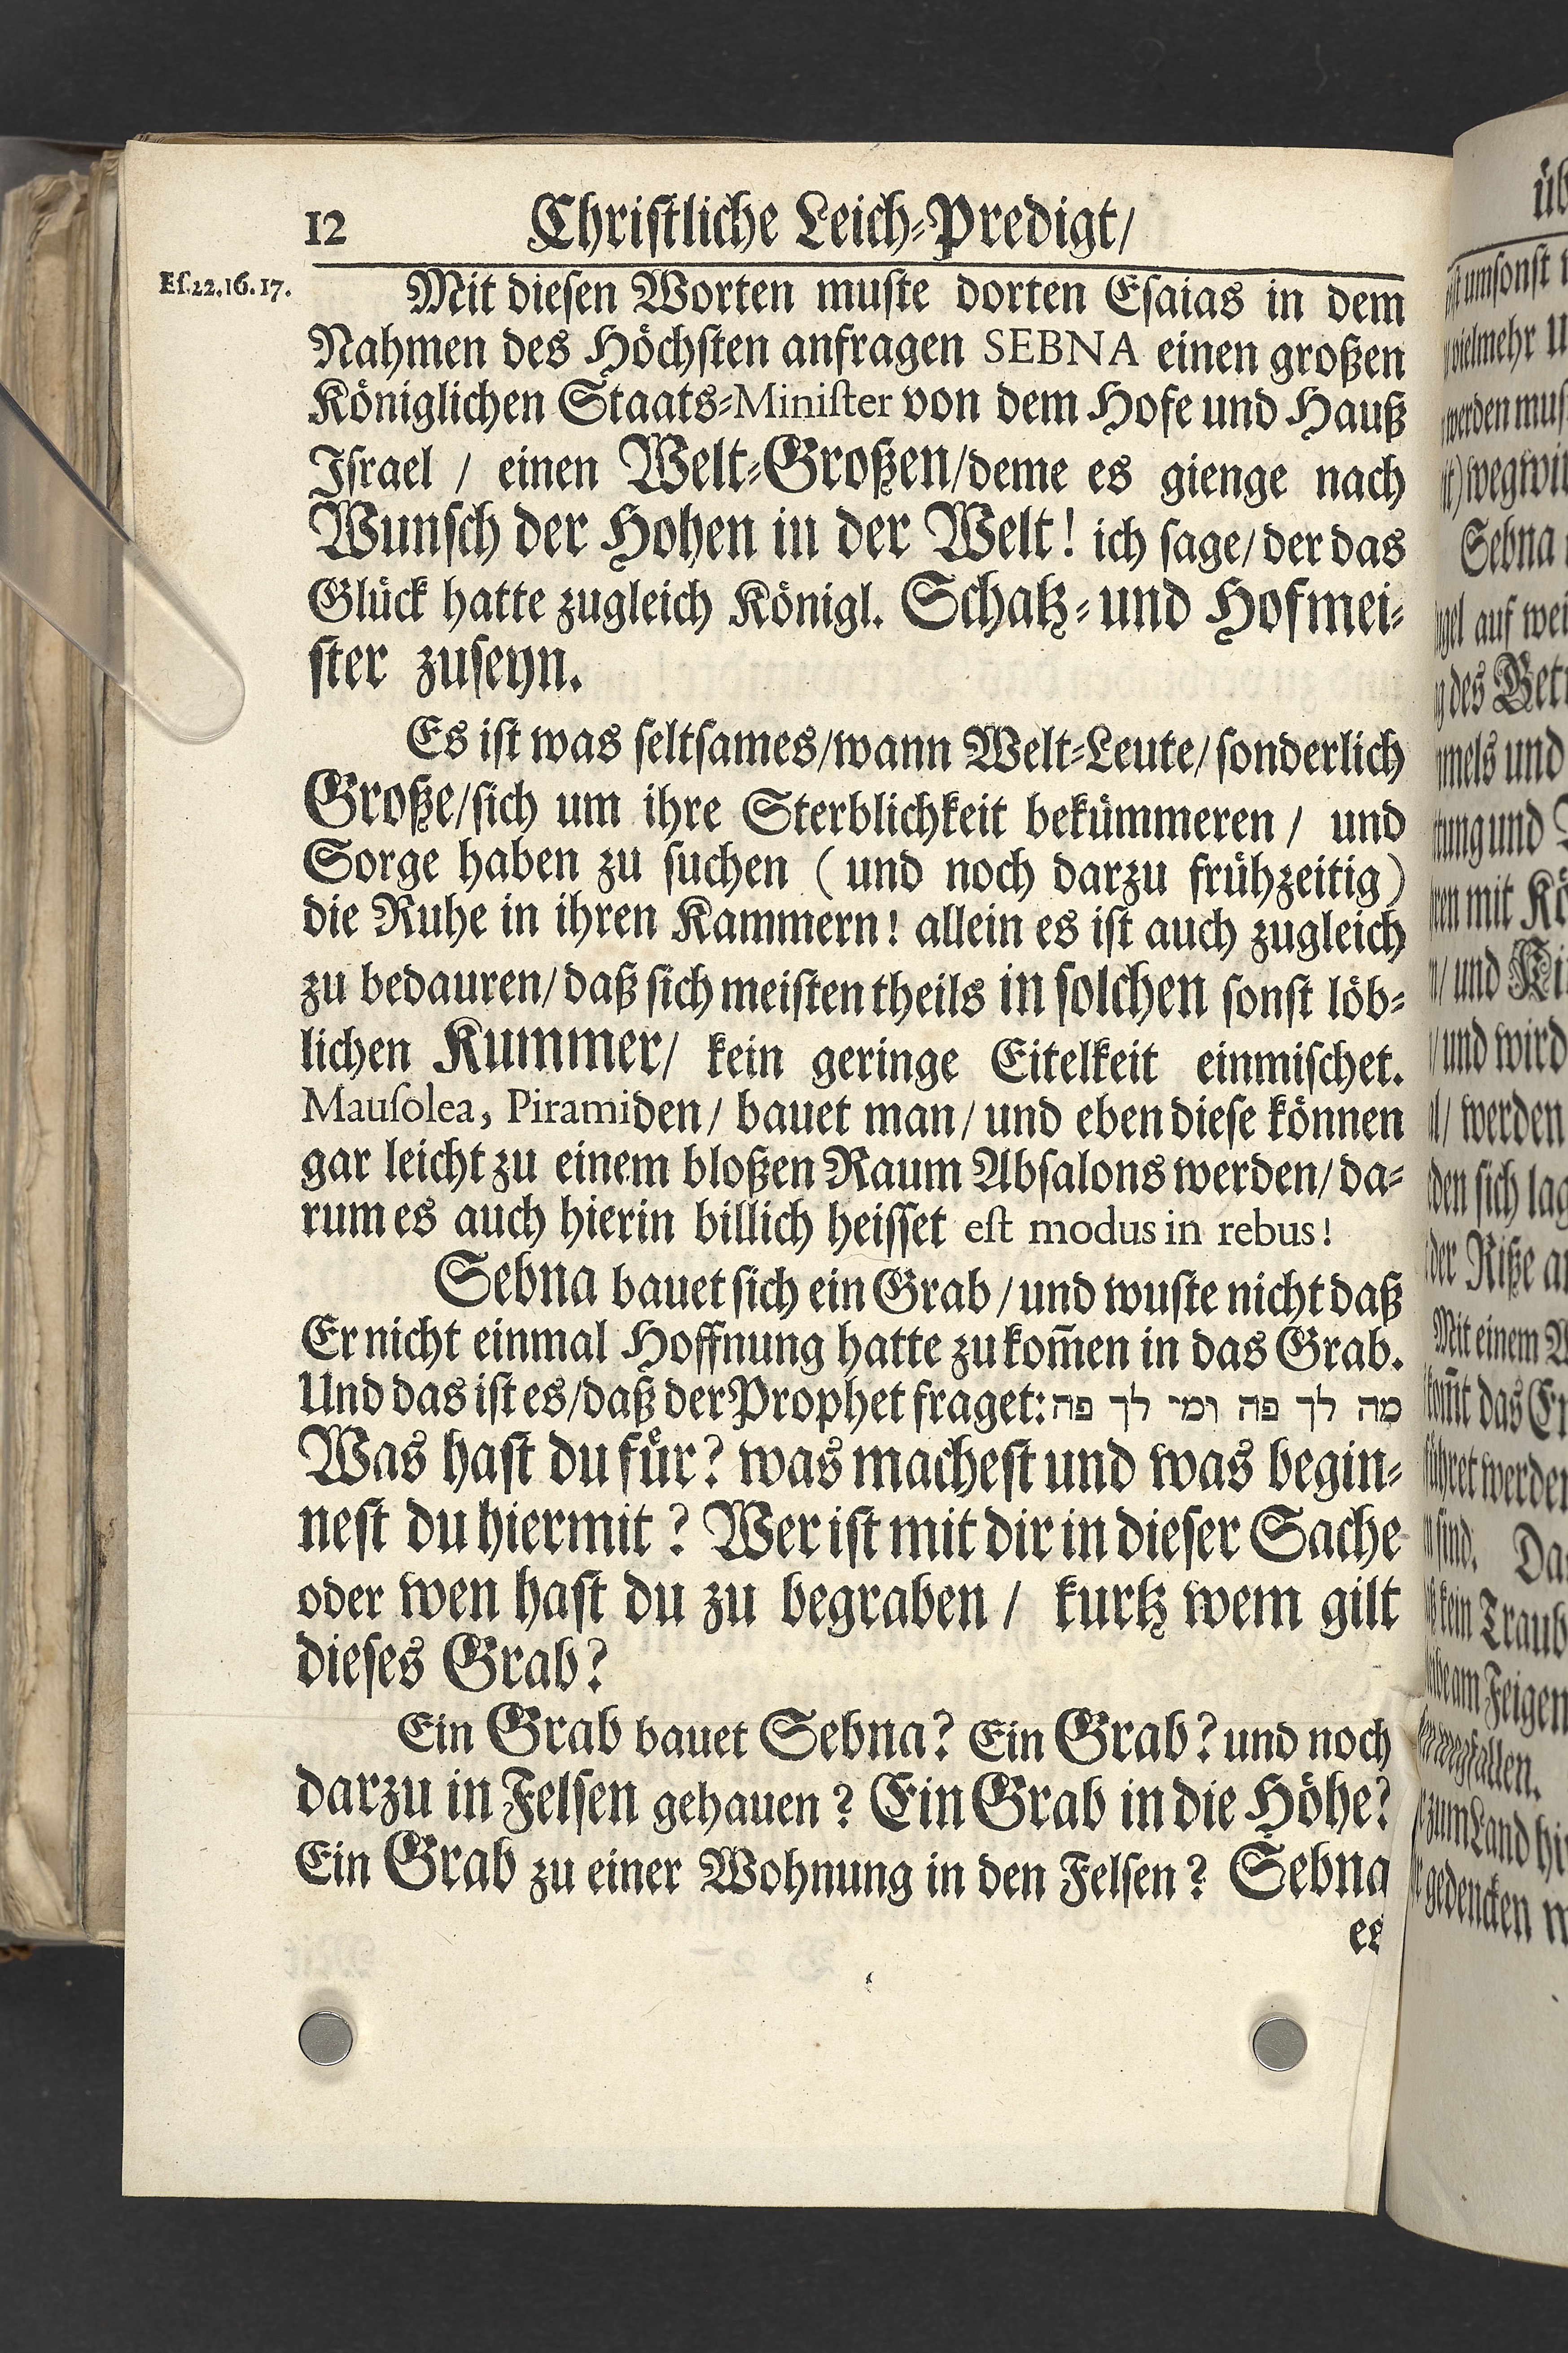 12 Christliche Leich-Predigt/
Eſ.22.16.17.
Mit dieſen Worten muſte dorten Eſaias in dem
Nahmen des Höchſten anfragen SEBNA einen großen
Königlichen Staats-Miniſter von dem Hofe und Hauß
Iſrael / einen Welt-Großen/deme es gienge nach
Wunſch der Hohen in der Welt! ich ſage/ der das
Glück hatte zugleich Königl. Schatz- und Hofmei-
ſter zuſeyn.
Es iſt was ſeltſames/wann Welt-Leute/ ſonderlich
Große/ſich um ihre Sterblichkeit bekümmeren / und
Sorge haben zu ſuchen (und noch darzu frühzeitig)
die Ruhe in ihren Kammern! allein es iſt auch zugleich
zu bedauren/ daß ſich meiſten theils in ſolchen ſonſt löb-
lichen Kummer/ kein geringe Eitelkeit einmiſchet.
Mauſolea, Piramiden/ bauet man/ und eben dieſe können
gar leicht zu einem bloßen Raum Abſalons werden/ da-
rum es auch hierin billich heiſſet eſt modus in rebus!
Sebna bauet ſich ein Grab / und wuſte nicht daß
Er nicht einmal Hoffnung hatte zu kom̄en in das Grab.
Und das iſt es/daß der Prophet fraget: מה לך פה ומי לך פה
Was haſt du fuͤr? was macheſt und was begin-
neſt du hiermit? Wer iſt mit dir in dieſer Sache
oder wen haſt du zu begraben / kurtz wem gilt
dieſes Grab?
Ein Grab bauet Sebna? Ein Grab? und noch
darzu in Felſen gehauen? Ein Grab in die Höhe?
Ein Grab zu einer Wohnung in den Felſen? Sebna
es
umſonſt
vielmehr
werden
wegwir
Sebna
auf
des
und
und
mit
und
und wird
werden
ſich
der Riße
Mit einem
das
werden
ſind. Da
kein Traub
am Feigen
zum Land
gedencken